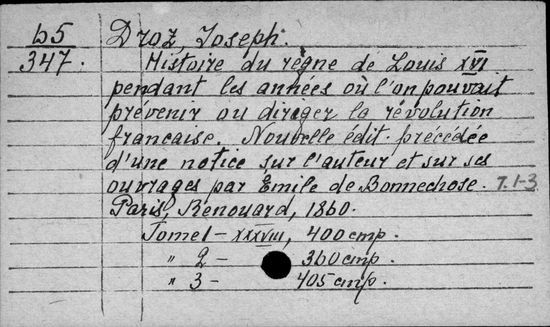 b5
347.
Droz, Joseph.
Histoire du règne de Louis XVI
pendant les années où l'on pouvait
prévenir ou diriger la révolution
française. Nouvelle édit. précédée
d'une notice sur l'auteur et sur ses
ouvrages par Émile de Bonnechose. T.1-3
Paris, Renouard, 1860.
Tome 1 - XXXVIII, 400 стр.
" 2 - 360 стр.
" 3 - 405 стр.